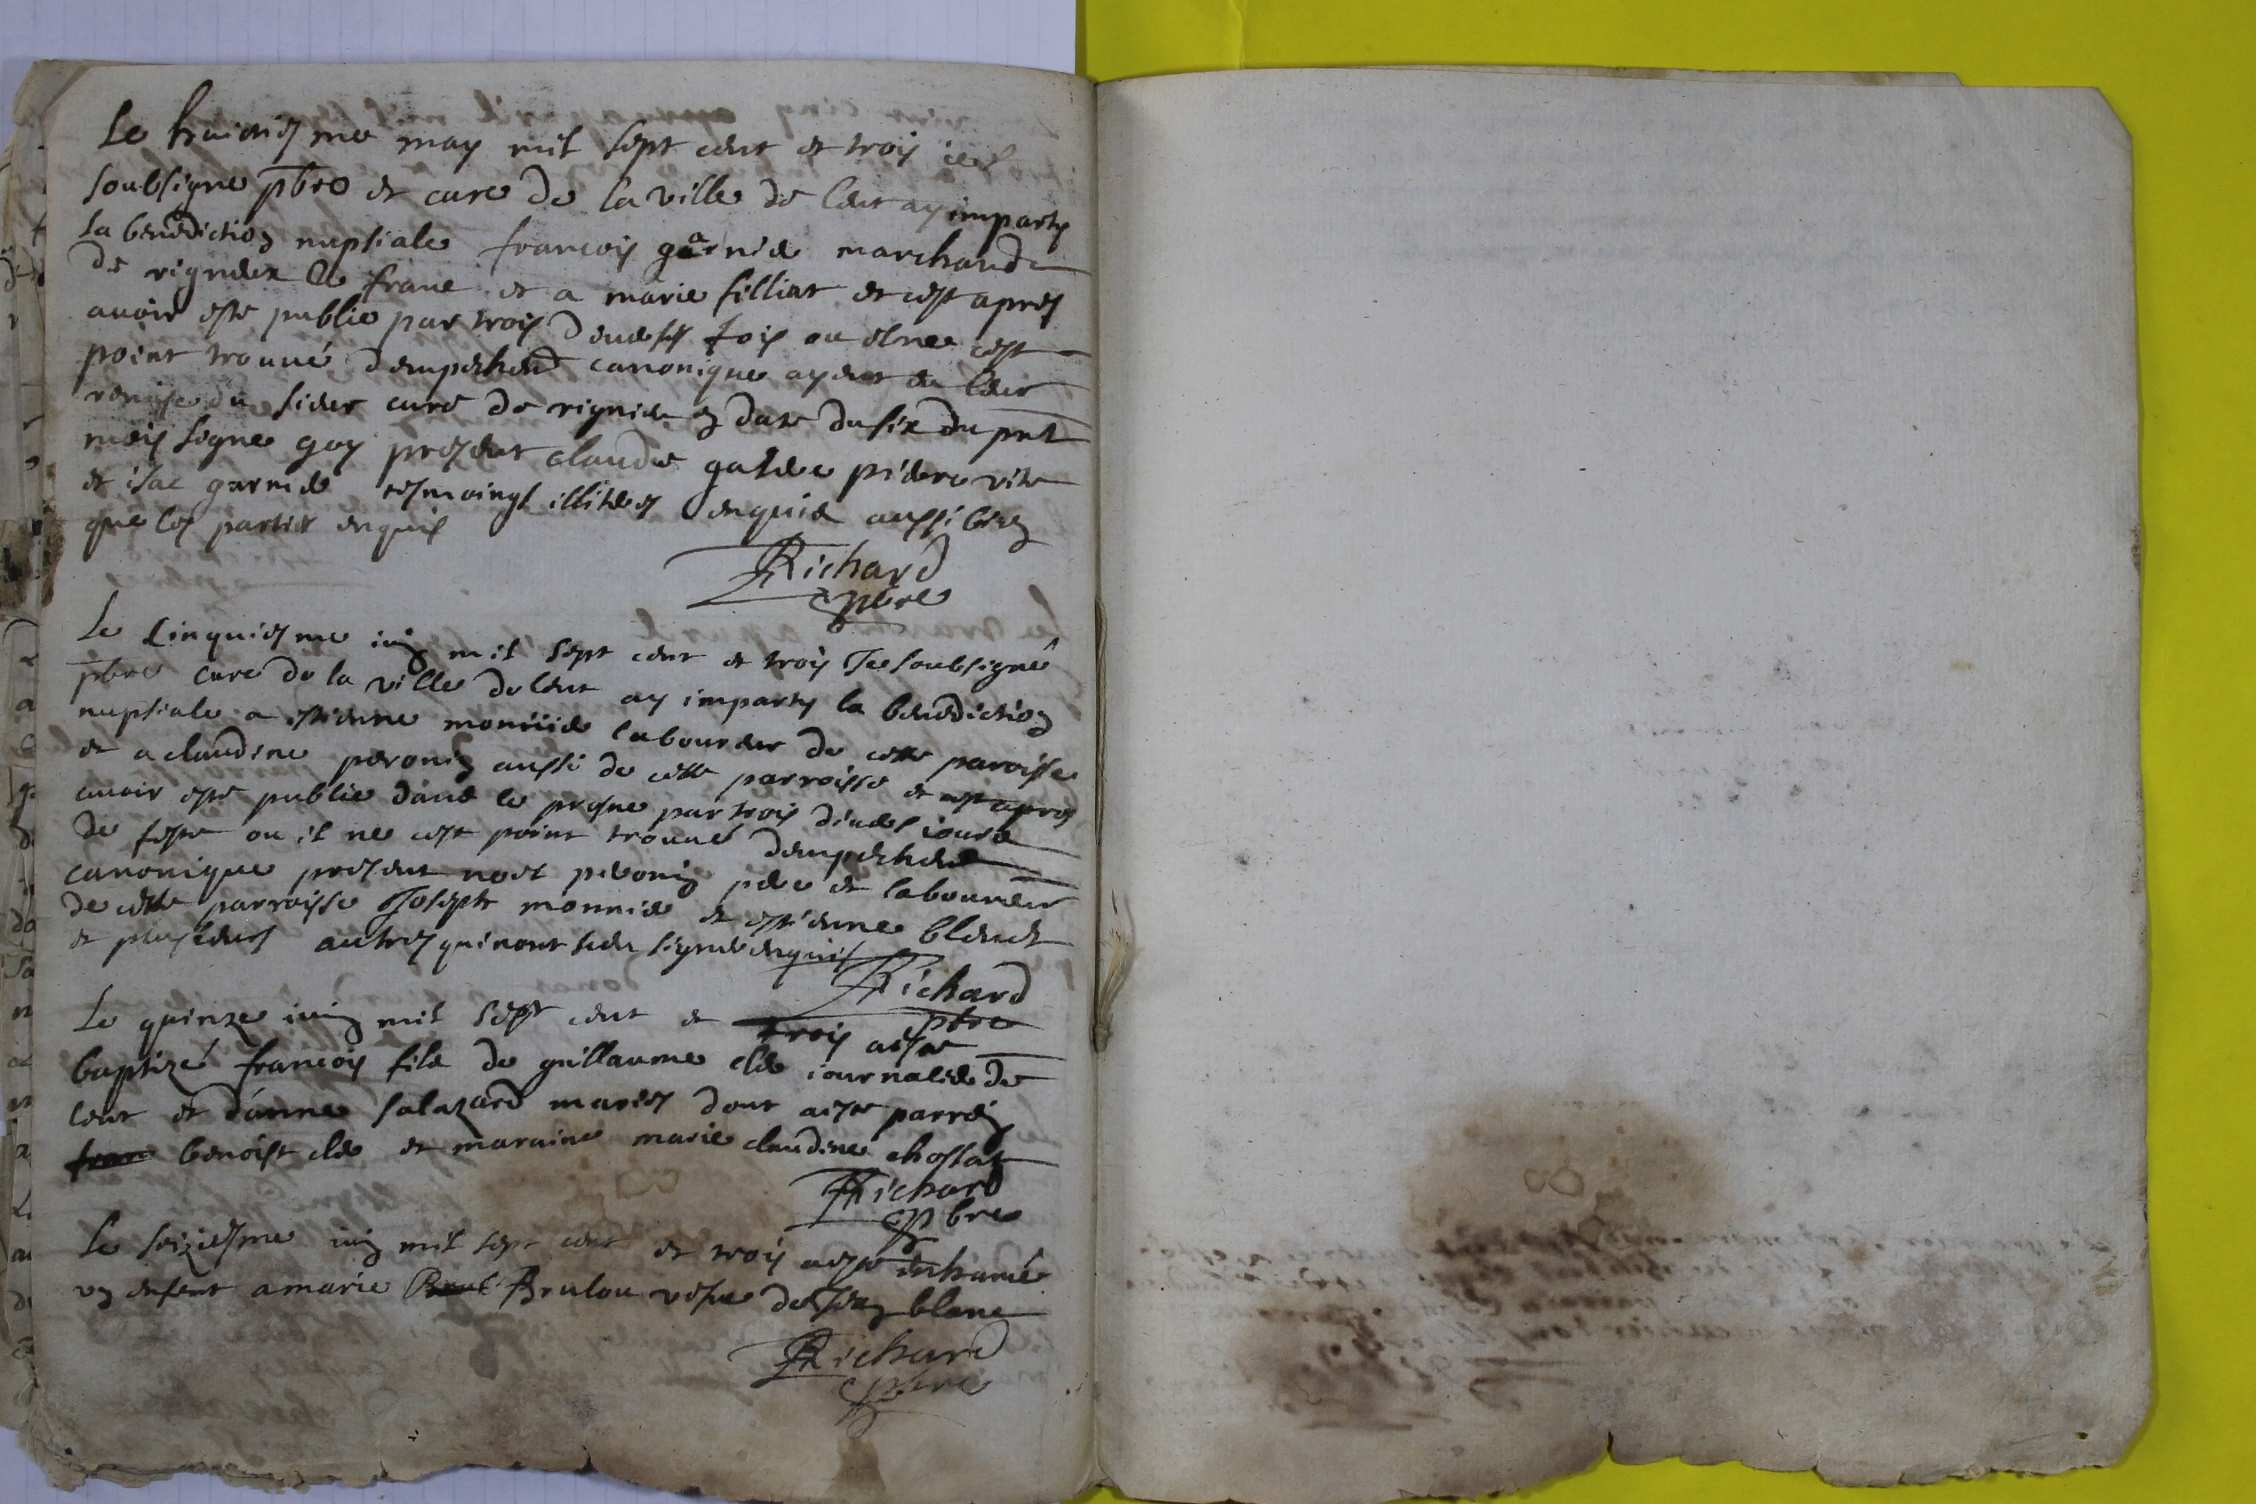 Le huictiesme may mil sept cent et trois ie
soubsigne pbre et curé de la ville de lent ay imparty
la benediction nuptiale francois garnie marchand
de rignieux le franc et a marie filliat et cest apres
avoir esté publie par trois fois ou il ne cest
point trouué dempechem canonique ayent eu leur
remise du sieur curé de rignieu en date du six du pnt
mois signe goy present claude pierre
et isac garnie tesmoings illiteres enquis aussi bien
que les parties enquis
Richard
pbre
Le cinquiesme iuin mil sept cent et trois Je soubsigné
pbre curé de la ville de lent ay imparty la benediction
nuptiale a estienne monnie laboureur de cette paroisse
et a claudine peronin aussi de cette parroisse et cest apres
auoir esté publie dans le prosne par trois diuers iours
de feste ou il ne cest point trouué dempechem
canonique present noel peronin pere et laboureur
de cette parroisse Joseph monnie et estienne blenet
et plusieurs autres qui nont sceu signer enquis
Richard
pbre
Le quinze iuin mil sept cent et trois a esté
baptizé francois fils de guillaume cle iournalie de
lent et d'anne salazard maries dont a esté parrein
fran benoist cle et maraine marie claudine chossat
Richard
pbre
Le seiziesme iuin mil sept cent et trois a esté enhumé
un enfent a marie Brulou vefue de Jean blanc
Richard
pbre